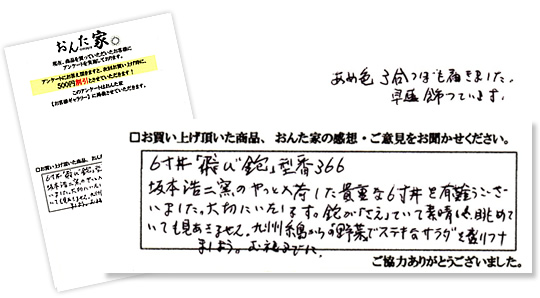 おんた家。
現在、商品を買っていただいたお客様に
アンケートを実施しております。
アンケートにお答え頂きますと、次回お買い上げ時に、
500円割引とさせていただきます!
このアンケートはおんた家
【お客様ギャラリー】に掲載させていただきます。
あめ色 3合つぼも届きました。
早速 飾っています。
□お買い上げ頂いた商品、おんた家の感想・ご意見をお聞かせください。
6寸丼「飛び鉋」型番366
坂本浩二窯のやっと入荷した貴重な6寸丼を有難うござい
ました。大切にいたします。鉋が「さえ」ていて素晴しく眺めて
いても見あきません。九州 からの野菜でステキなサラダを盛りつけ
ましょう。お礼までに。
ご協力ありがとうございました。